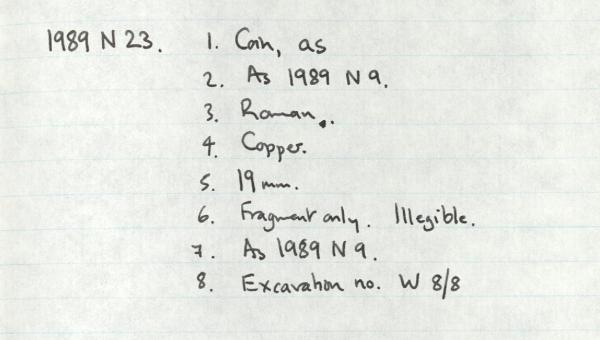 1989 N 23. 1. Coin, as
2. As 1989 N 9.
3. Roman.
4. Copper.
5. 19 mm.
6. Fragment only. Illegible.
7. As 1989 N 9.
8. Excavation no. W 8/8